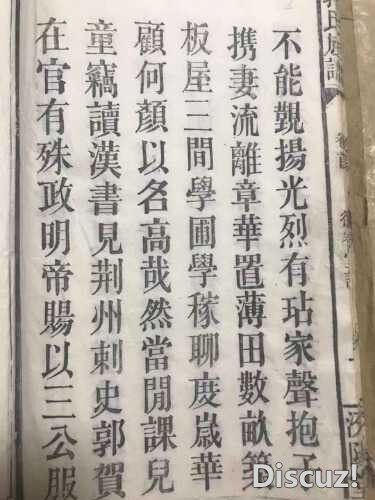 氏族譜
卷首
不能覲揚光烈有玷家聲抱子
攜妻流離章華置薄田數畝築
板屋三間學圃學稼聊度歲華
顧何顏以名高哉然當閒課兒
童竊讀漢書見荆州刺史郭賀
在官有殊政明帝賜以三公服
Discuz!